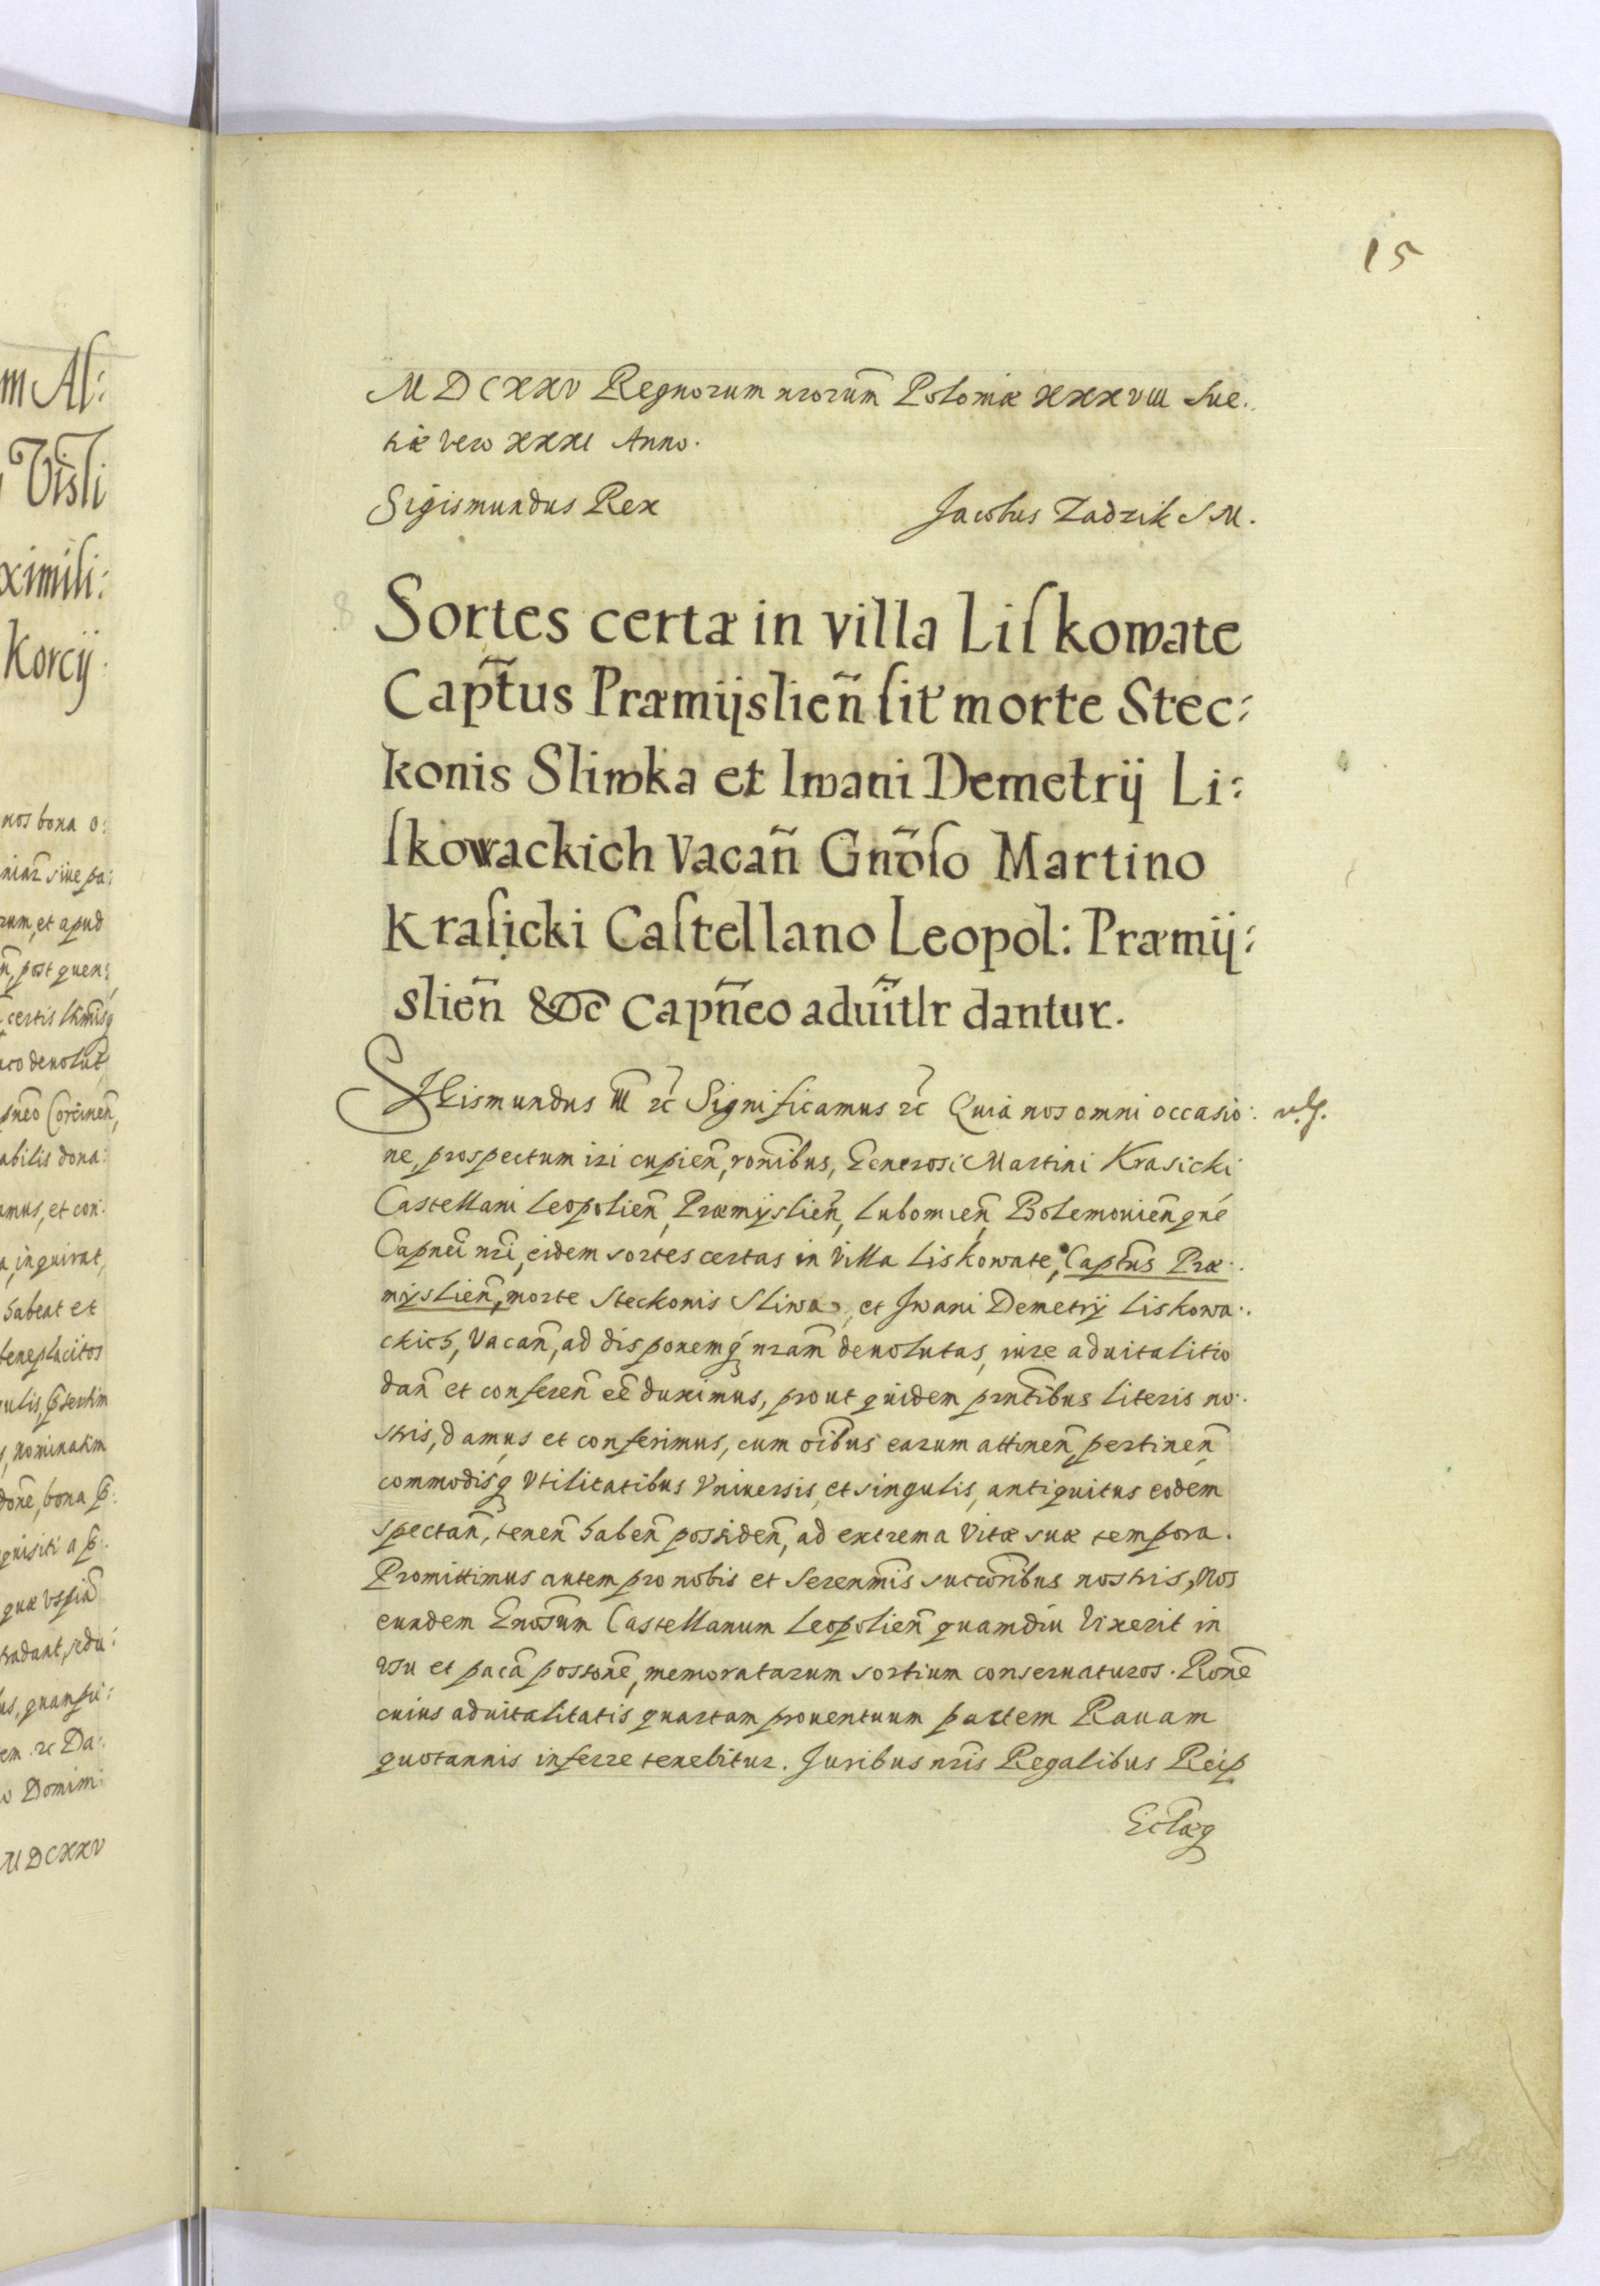 15
MDCXXV Regnorum nrorum̃ Poloniæ XXXVIII Sue:
tiæ vero XXXI Anno.
Sigismundus Rex Jacobus Zadzik S M.
8
Sortes certæ in villa Liſkowate
Capt̃us Præmijslieñ sit' morte Stec:
konis Sliwka et Iwani Demetrij Li:
ſkowackich Vacañ Gnõſo Martino
Kraſicki Caſtellano Leopol: Præmij:
slieñ &c̃ Capñeo aduĩtlr dantur.
SIGismundus IIĨ ꝛc̃ Significamus ꝛc̃ Quia nos omni occasio:
ne, prospectum iri cupieñ, ronĩbus, Generosi Martini Krasicki
Castellani Leopolieñ, Præmijslieñ, Lubomieñ, Bolemouieñ qué
Capneĩ nrĩ, eidem sortes certas in Villa Liskowate, Capt̃us Præ:
mijslieñ, morte Steckonis Sliwa, et Iwani Demetrij Liskowa:
ckich, Vacañ, ad disponemq́ nram̃ deuolutas, iure aduitalitio
dañ et confereñ eẽ duximus, prout quidem prntĩbus literis no:
stris, damus et conferimus, cum oĩbus earum attineñ, pertineñ
commodisq́ Vtilitatibus Vniuersis, et singulis, antiquitus eodem
spectañ, teneñ habeñ possideñ, ad extrema Vitæ suæ tempora.
Promittimus autem pro nobis et Serenm̃is succor̃ibus nostris, Nos
eundem Gnosũm Castellanum Leopolieñ quamdiu Vixerit in
vsu et pacã possionẽ, memoratarum sortium conseruaturos. Ronẽ
cuius aduitalitatis quartam prouentuum partem Rauam
quotannis inferre tenebitur. Juribus nrĩs Regalibus Reip
Ecl̃æq́
m Al:
Visli
ximili:
Korcij
nos bona o:
siue pa:
rum, et apud
post quen:
certis
aco deuolut̃
pneõ Corcineñ,
abilis dona:
amus, et con:
a, inquirat,
habeat et
beneplacitos
gulis,
nominatim
donẽ, bona p̃:
quisiti a p̃:
quæ Vspiã
tradant, sedu:
us, quampri:
em ꝛc Da:
o Domini
MDCXXV